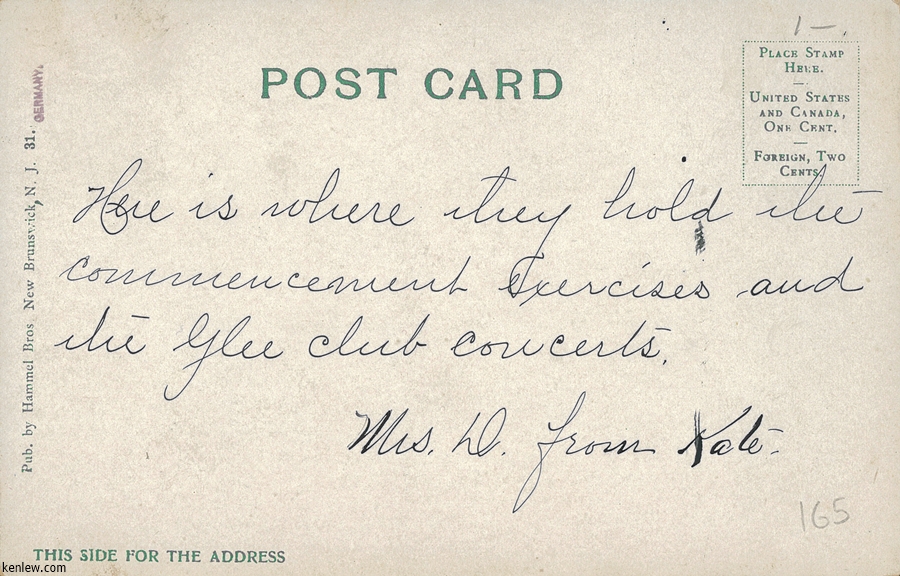 1-.
POST CARD
PLACE STAMP
HERE.
UNITED STATES
AND CANADA,
ONE CENT.
FOREIGN, TWO
CENTS.
GERMANY.
Pub. by Hammel Bros. New Brunswick, N. J. 31.
Here is where they hold the
commencement exercises and
the Glee club concerts.
Mrs. D. from Kate.
165
THIS SIDE FOR THE ADDRESS
kenlew.com